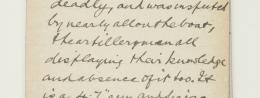 deadly, and was inspected
by nearly all on the boat,
the artillerymen all
displaying their knowledge
and absence of it too. It
is a 4.7" gun and